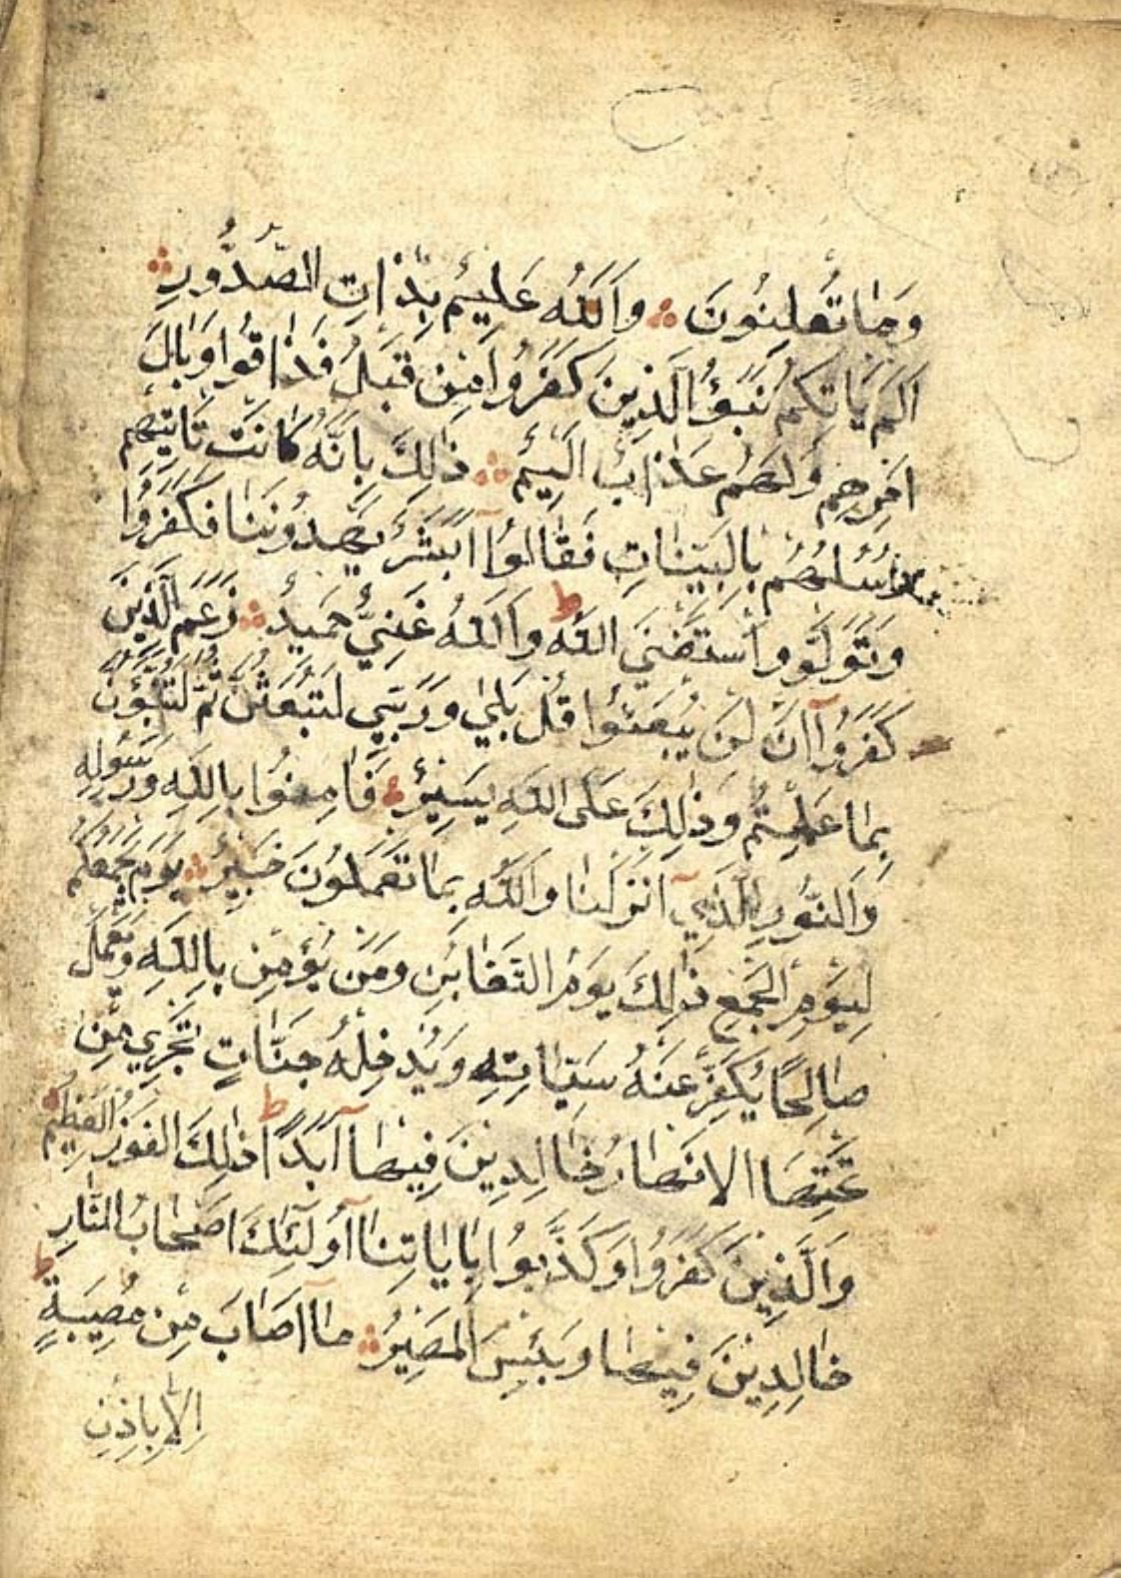 وَمَا تُعْلِنُونَ ۞ وَاَللّٰهُ عَلِيمٌ بِذَاتِ الصُّدُورِ ۞
اَلَمْ يَاتِكُمْ نَبَؤُا الَّذِينَ كَفَرُوا مِنْ قَبْلُ فَذَاقُوا وَبَالَ
اَمْرِهِمْ وَلَهُمْ عَذَابٌ اَلِيمٌ ۞ ذٰلِكَ بِاَنَّهُ كَانَتْ تَاتِيهِمْ
رُسُلُهُمْ بِالْبَيِّنَاتِ فَقَالُوٓا اَبَشَرٌ يَهْدُونَنَا فَكَفَرُوا
وَتَوَلَّوْ وَاسْتَغْنَيَ اللّٰهُ ط وَاَللّٰهُ غَنِيٌّ حَمِيدٌ ۞ زَعَمَ الَّذِينَ
كَفَرُوٓا اَنْ لَنْ يُبْعَثُوا قُلْ بَلٰي وَرَبِّي لَتُبْعَثُنَّ ثُمَّ لَتُنَبَّؤُنَّ
بِمَا عَمِلْتُمْ وَذٰلِكَ عَلَى اللّٰهِ يَسِيرٌ ۞ فَاٰمِنُوا بِاللّٰهِ وَرَسُولِهِ
وَالنُّورِ الَّذِيٓ اَنْزَلْنَا وَاللّٰهُ بِمَا تَعْمَلُونَ خَبِيرٌ ۞ يَوْمَ يَجْمَعُكُمْ
لِيَوْمِ الْجَمْعِ ذٰلِكَ يَوْمُ التَّغَابُنِ وَمَنْ يُؤْمِنْ بِاللّٰهِ وَيَعْمَلْ
صَالِحًا يُكَفِّرْ عَنْهُ سَيِّاٰتِهِ وَيُدْخِلْهُ جَنَّاتٍ تَجْرِي مِنْ
تَحْتِهَا الْاَنْهَارُ خَالِدِينَ فِيهَآ اَبَدًا ط ذٰلِكَ الْفَوْزُ الْعَظِيمُ ۞
وَالَّذِينَ كَفَرُوا وَكَذَّبُوا بِاٰيَاتِنَآ اُولٰئِكَ اَصْحَابُ النَّارِ
خَالِدِينَ فِيهَا ط وَبِئْسَ الْمَصِيرُ ۞ مَآ اَصَابَ مِنْ مُصِيبَةٍ
اِلَّا بِاِذْنِ